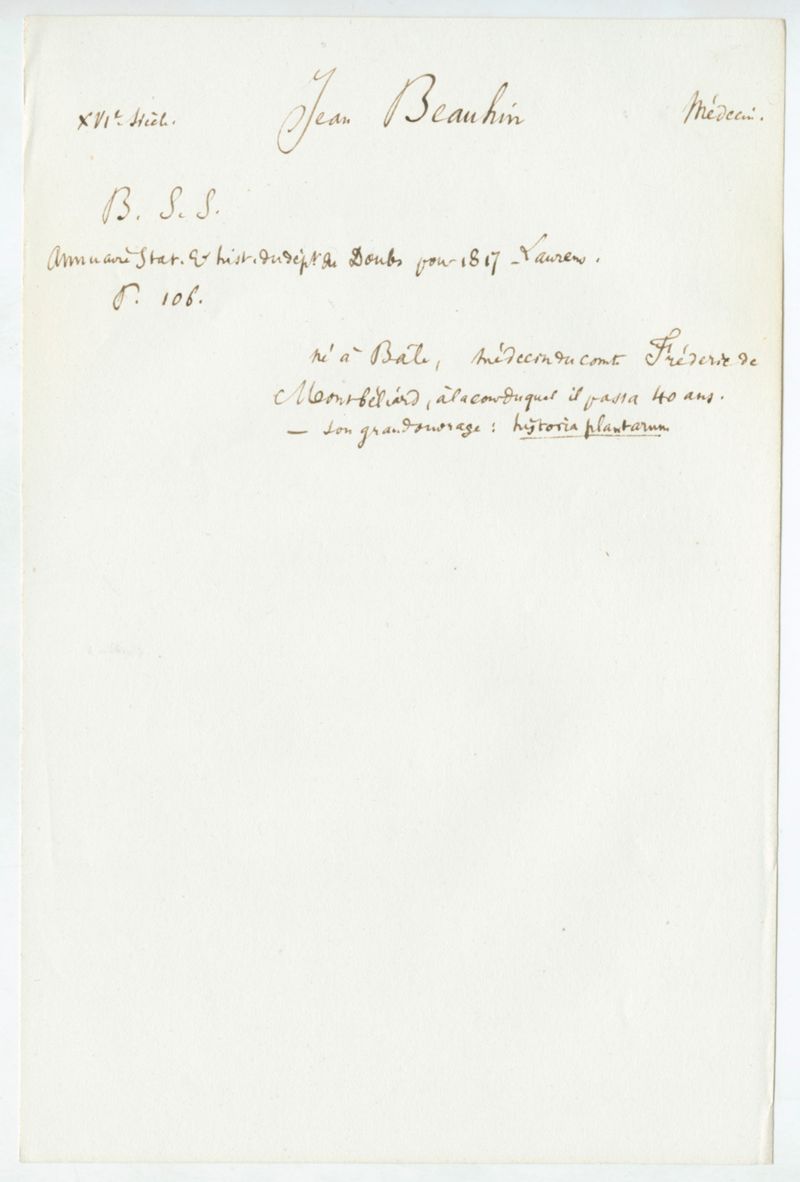 XVIe Siècle. Jean Beauhin Médecin.
B. S. S.
Annuaire Stat. & hist. du dépt du Doubs pour 1817 - Laurens.
P. 106.
né à Bâle, médecin du comte Fréderic de
Montbéliard, à la cour duquel il passa 40 ans.
— son grand ouvrage : historia plantarum